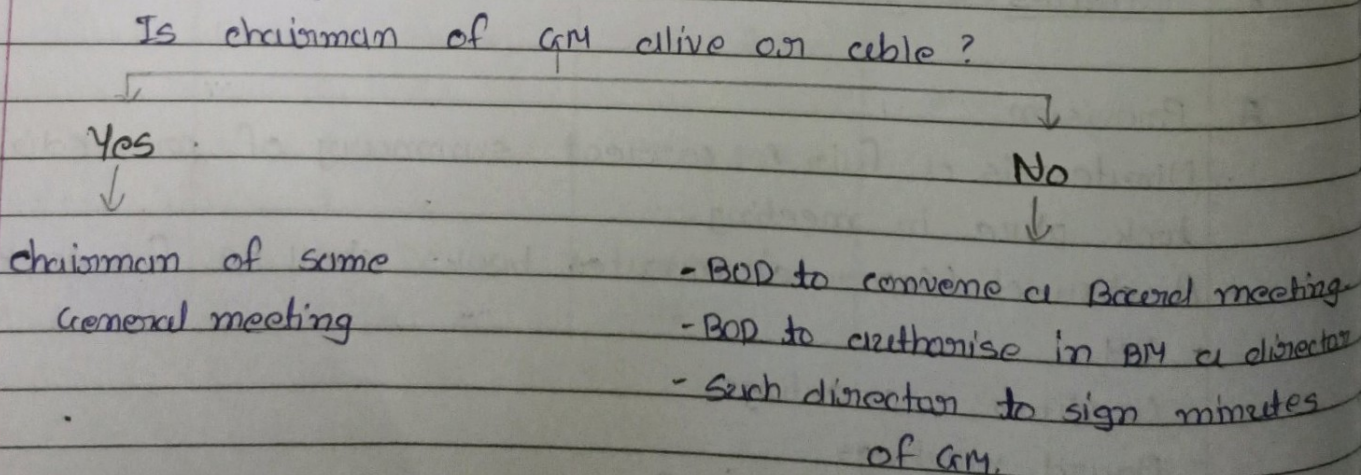 Is chairman of GM alive or able?
Yes
No
chairman of same
General meeting
- BOD to convene a Board meeting
- BOD to authorise in BM a director
- Such director to sign minutes
of GM.